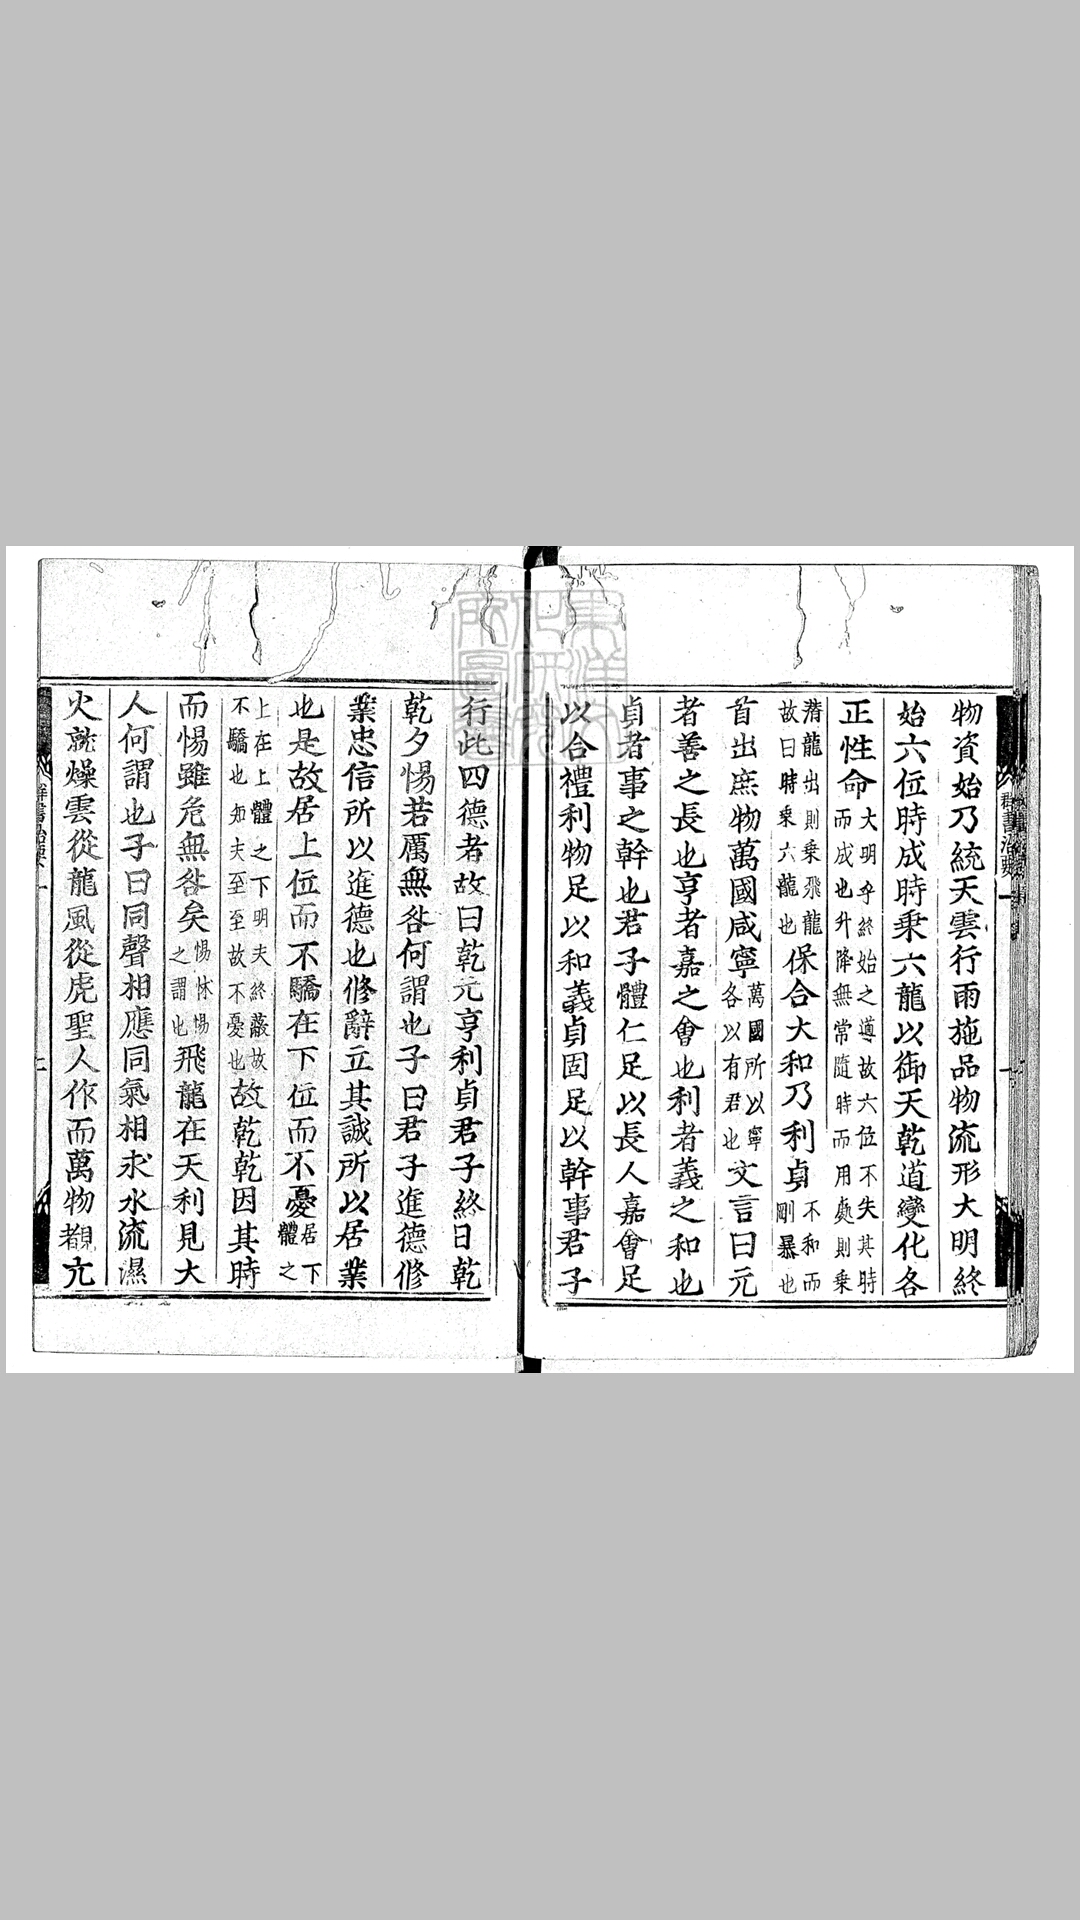 物資始乃統天雲行雨施品物流形大明終
始六位時成時乘六龍以御天乾道變化各
正性命大明乎終始之道故六位不失其時而成也升降無常隨時而用處則乘
潛龍出則乘飛龍故曰時乘六龍也保合大和乃利貞不和而剛暴也
首出庶物萬國咸寧萬國所以寧各以有君也文言曰元
者善之長也亨者嘉之會也利者義之和也
貞者事之幹也君子體仁足以長人嘉會足
以合禮利物足以和義貞固足以幹事君子
行此四德者故曰乾元亨利貞君子終日乾
乾夕惕若厲無咎何謂也子曰君子進德修
業忠信所以進德也修辭立其誠所以居業
也是故居上位而不驕在下位而不憂居下體之
上在上體之下明夫終蔽故不驕也知夫至至故不憂也故乾乾因其時
而惕雖危無咎矣惕怵惕之謂也飛龍在天利見大
人何謂也子曰同聲相應同氣相求水流濕
火就燥雲從龍風從虎聖人作而萬物覩亢